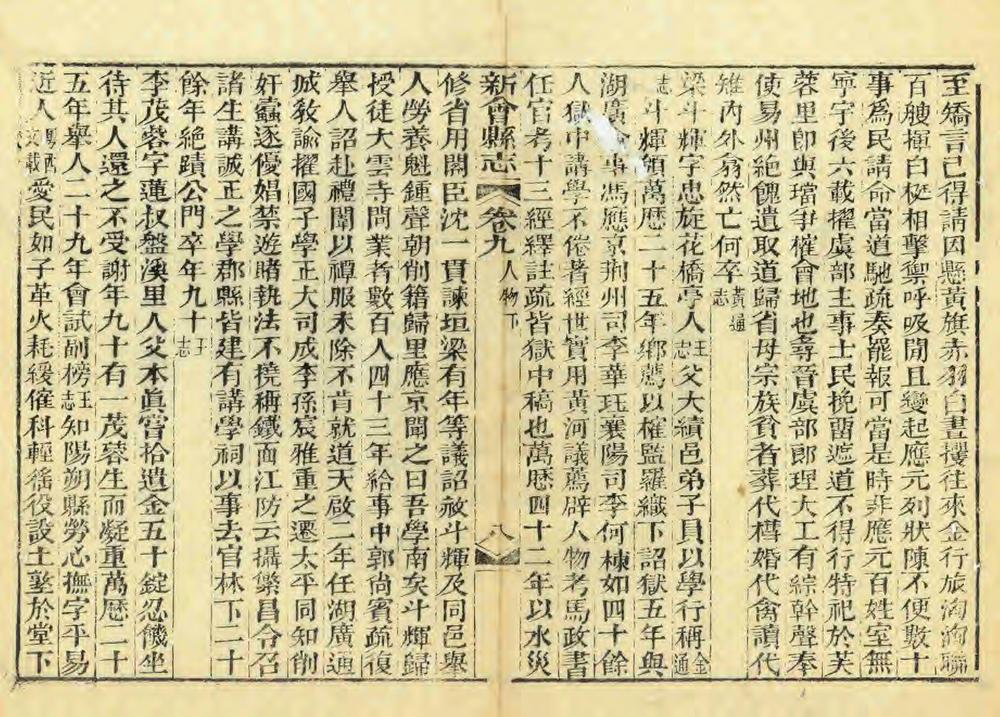 至矯言已得請因懸黃旗赤羽白晝摟往來金行旅洶洶聯
百艘揮白梃相擊禦呼吸閒且變起應元列狀陳不便數十
事爲民請命當道馳疏奏罷報可當是時非應元百姓室無
寧宇後六載擢虞部主事士民挽畱遮道不得行特祀於芙
蓉里卽與璫爭榷會地也尋晉虞部郎理大工有綜幹聲奉
使易州絶餽遺取道歸省母宗族貧者葬代槥婚代禽讀代
雉內外翕然亡何卒黃通志
梁斗輝字忠旋花橋亭人王志父大績邑弟子員以學行稱金通
志斗輝領萬歷二十五年鄉薦以榷監羅織下詔獄五年與
湖廣僉事馮應京荆州司李華珏襄陽司李何棟如四十餘
人獄中講學不倦著經世實用黃河議薦辟人物考馬政書
任官考十三經繹註疏皆獄中稿也萬歷四十二年以水災
新會縣志 卷九 人物下 八
修省用閣臣沈一貫諫垣梁有年等議詔赦斗輝及同邑舉
人勞養魁鍾聲朝削籍歸里應京聞之曰吾學南矣斗輝歸
授徒大雲寺問業者數百人四十三年給事中郭尙賓疏復
舉人詔赴禮闈以禫服未除不肯就道天啟二年任湖廣通
城敎諭擢國子學正大司成李孫宸雅重之遷太平同知削
奸蠹逐優娼禁遊賭執法不撓稱鐵面江防云攝繁昌令召
諸生講誠正之學郡縣皆建有講學祠以事去官林下二十
餘年絶蹟公門卒年九十王志
李茂蓉字蓮叔盤溪里人父本眞嘗拾遺金五十錠忍饑坐
待其人還之不受謝年九十有一茂蓉生而凝重萬歷二十
五年舉人二十九年會試副榜王志知陽朔縣勞心撫字平易
近人愛民如子革火耗緩催科輕徭役設土塹於堂下